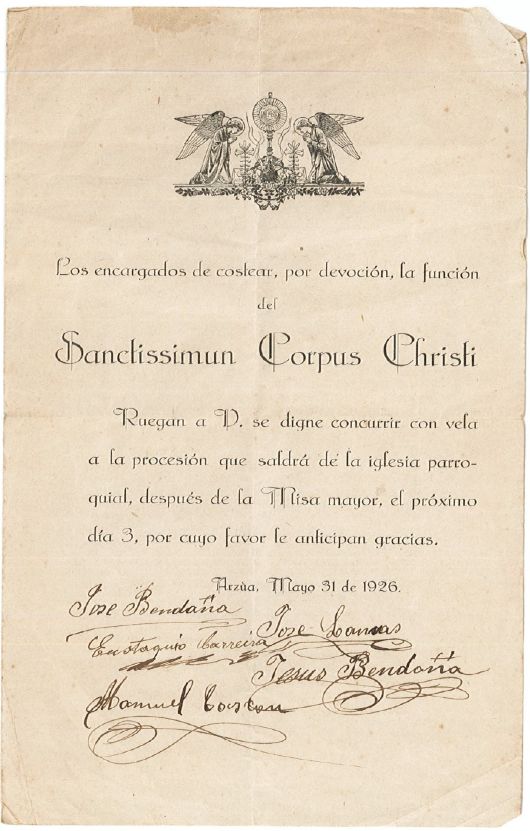 Los encargados de costear, por devoción, la función
del
Sanctissimun Corpus Christi
Ruegan a V. se digne concurrir con vela
a la procesión que saldrá de la iglesia parro-
quial, después de la Misa mayor, el próximo
día 3, por cuyo favor le anticipan gracias.
Arzùa, Mayo 31 de 1926.
Jose Bendaña
Jose Lamas
Eustaquio Carreira
Jesus Bendaña
Manuel